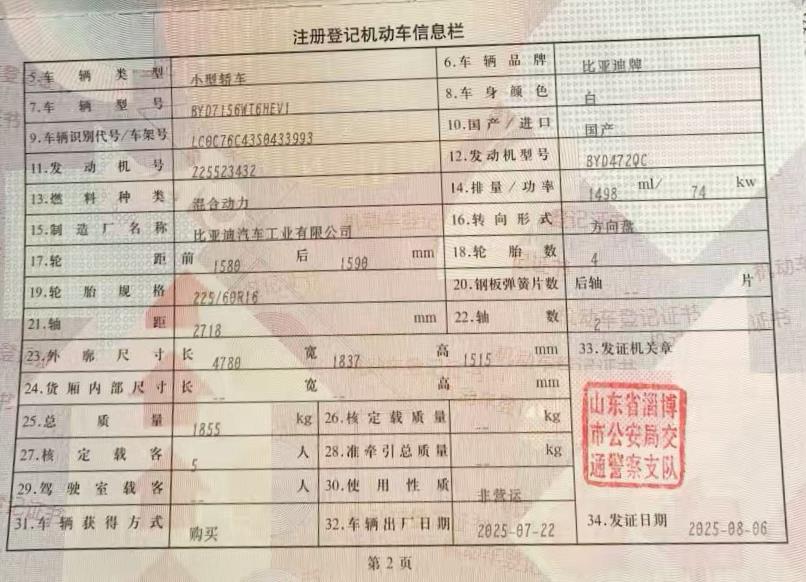 注册登记机动车信息栏
5.车辆类型 小型轿车 6.车辆品牌 比亚迪牌
7.车辆型号 BYD7156WT6HEV1 8.车身颜色 白
9.车辆识别代号/车架号 LC0C76C43S0433993 10.国产/进口 国产
11.发动机号 225523432 12.发动机型号 BYD472QC
13.燃料种类 混合动力 14.排量/功率 1498 ml/ 74 kw
15.制造厂名称 比亚迪汽车工业有限公司 16.转向形式 方向盘
17.轮距 前 1580 后 1590 mm 18.轮胎数 4
19.轮胎规格 225/60R16 20.钢板弹簧片数 后轴 -- 片
21.轴距 2718 mm 22.轴数 2
23.外廓尺寸 长 4780 宽 1837 高 1515 mm 33.发证机关章
24.货厢内部尺寸 长 -- 宽 -- 高 -- mm
25.总质量 1855 kg 26.核定载质量 -- kg
27.核定载客 5 人 28.准牵引总质量 -- kg
29.驾驶室载客 -- 人 30.使用性质 非营运
31.车辆获得方式 购买 32.车辆出厂日期 2025-07-22 34.发证日期 2025-08-06
山东省淄博
市公安局交
通警察支队
第2页